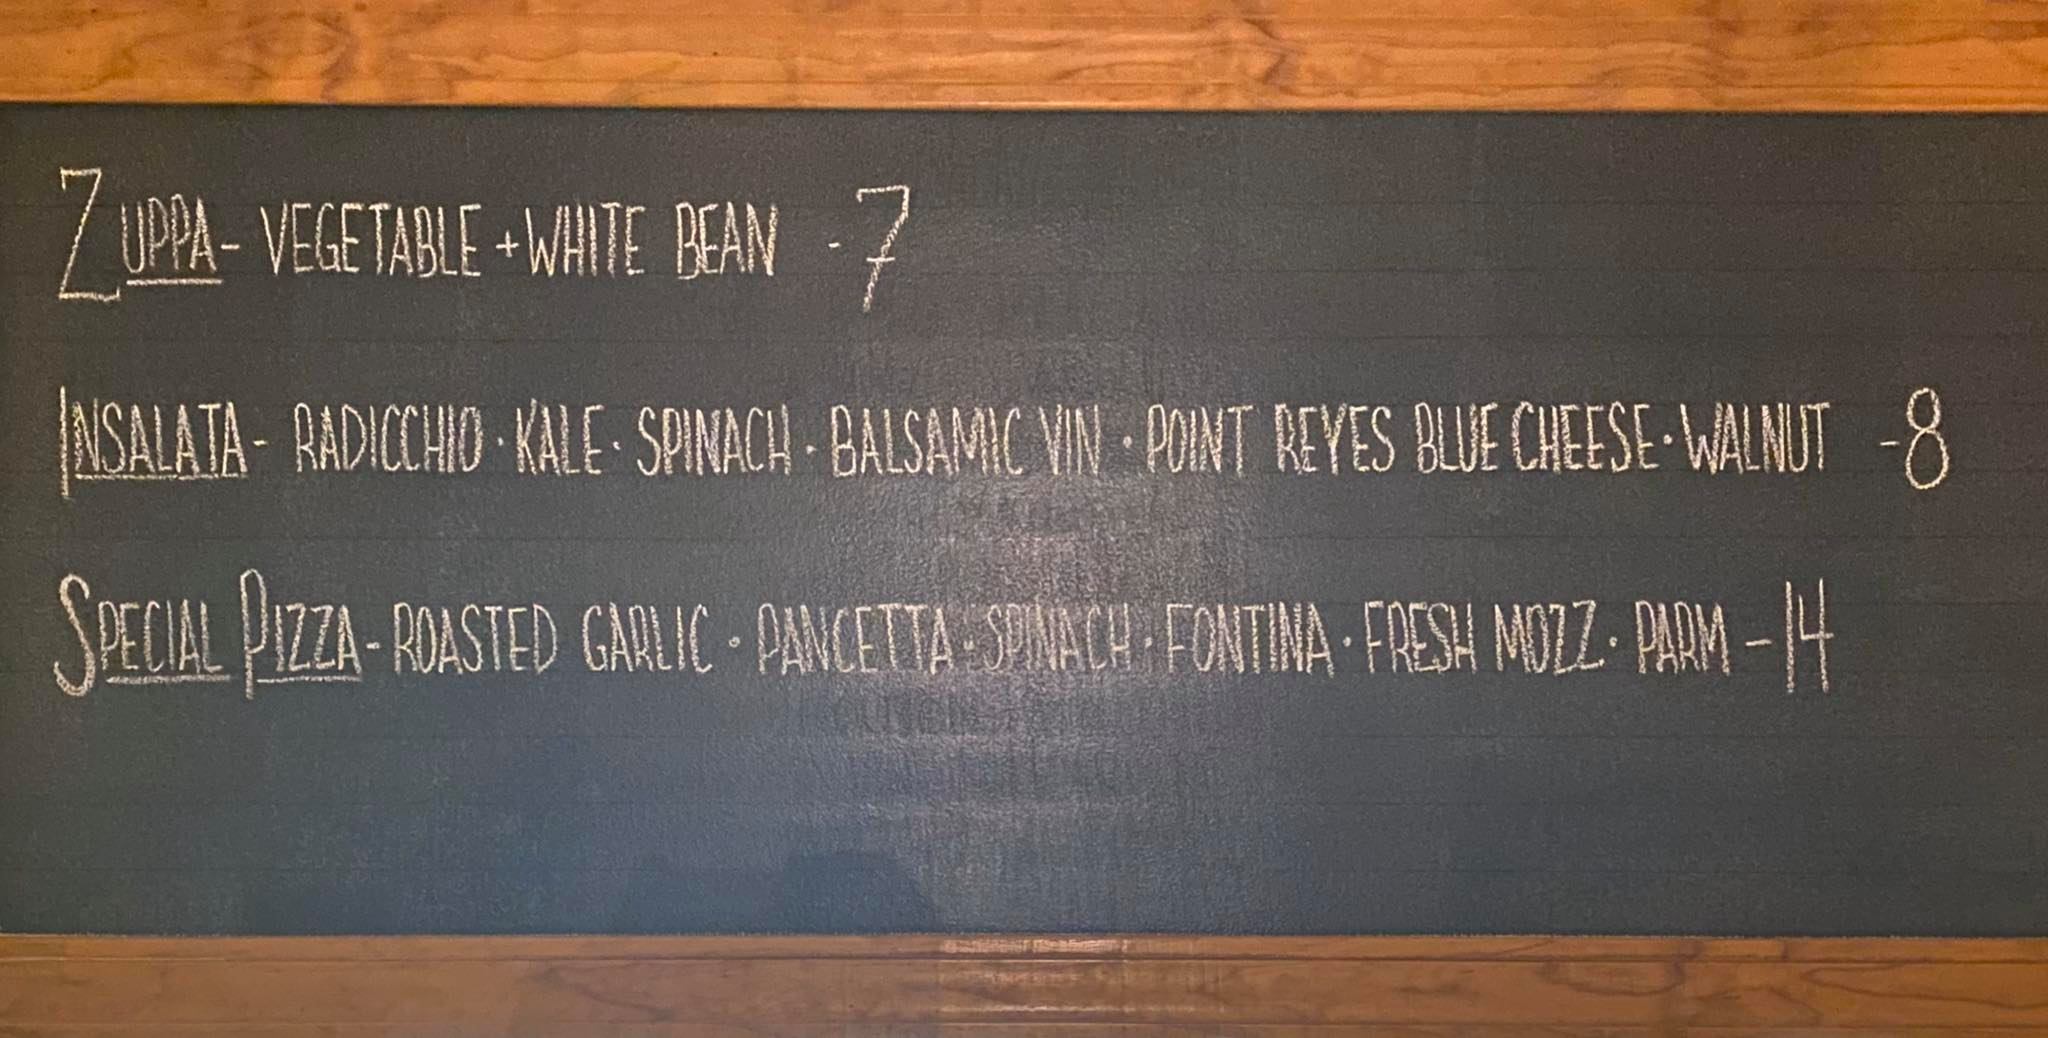 ZUPPA- VEGETABLE + WHITE BEAN -7
INSALATA- RADICCHIO · KALE · SPINACH · BALSAMIC VIN · POINT REYES BLUE CHEESE · WALNUT -8
SPECIAL PIZZA- ROASTED GARLIC · PANCETTA · SPINACH · FONTINA · FRESH MOZZ · PARM -14